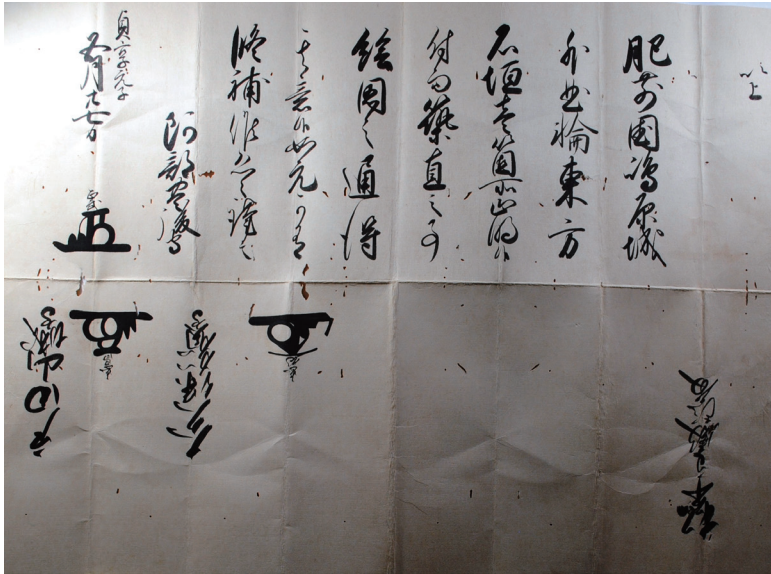 以上
肥前國嶋原城
外曲輪東方
石垣壱箇所崩候
付而築直之事
絵圖之通得
其意候如元可有
修補候恐々謹言
貞享元子
五月十七日
阿部豊後守
正武
戸田山城守
忠昌
大久保加賀守
忠朝
松平主殿頭殿